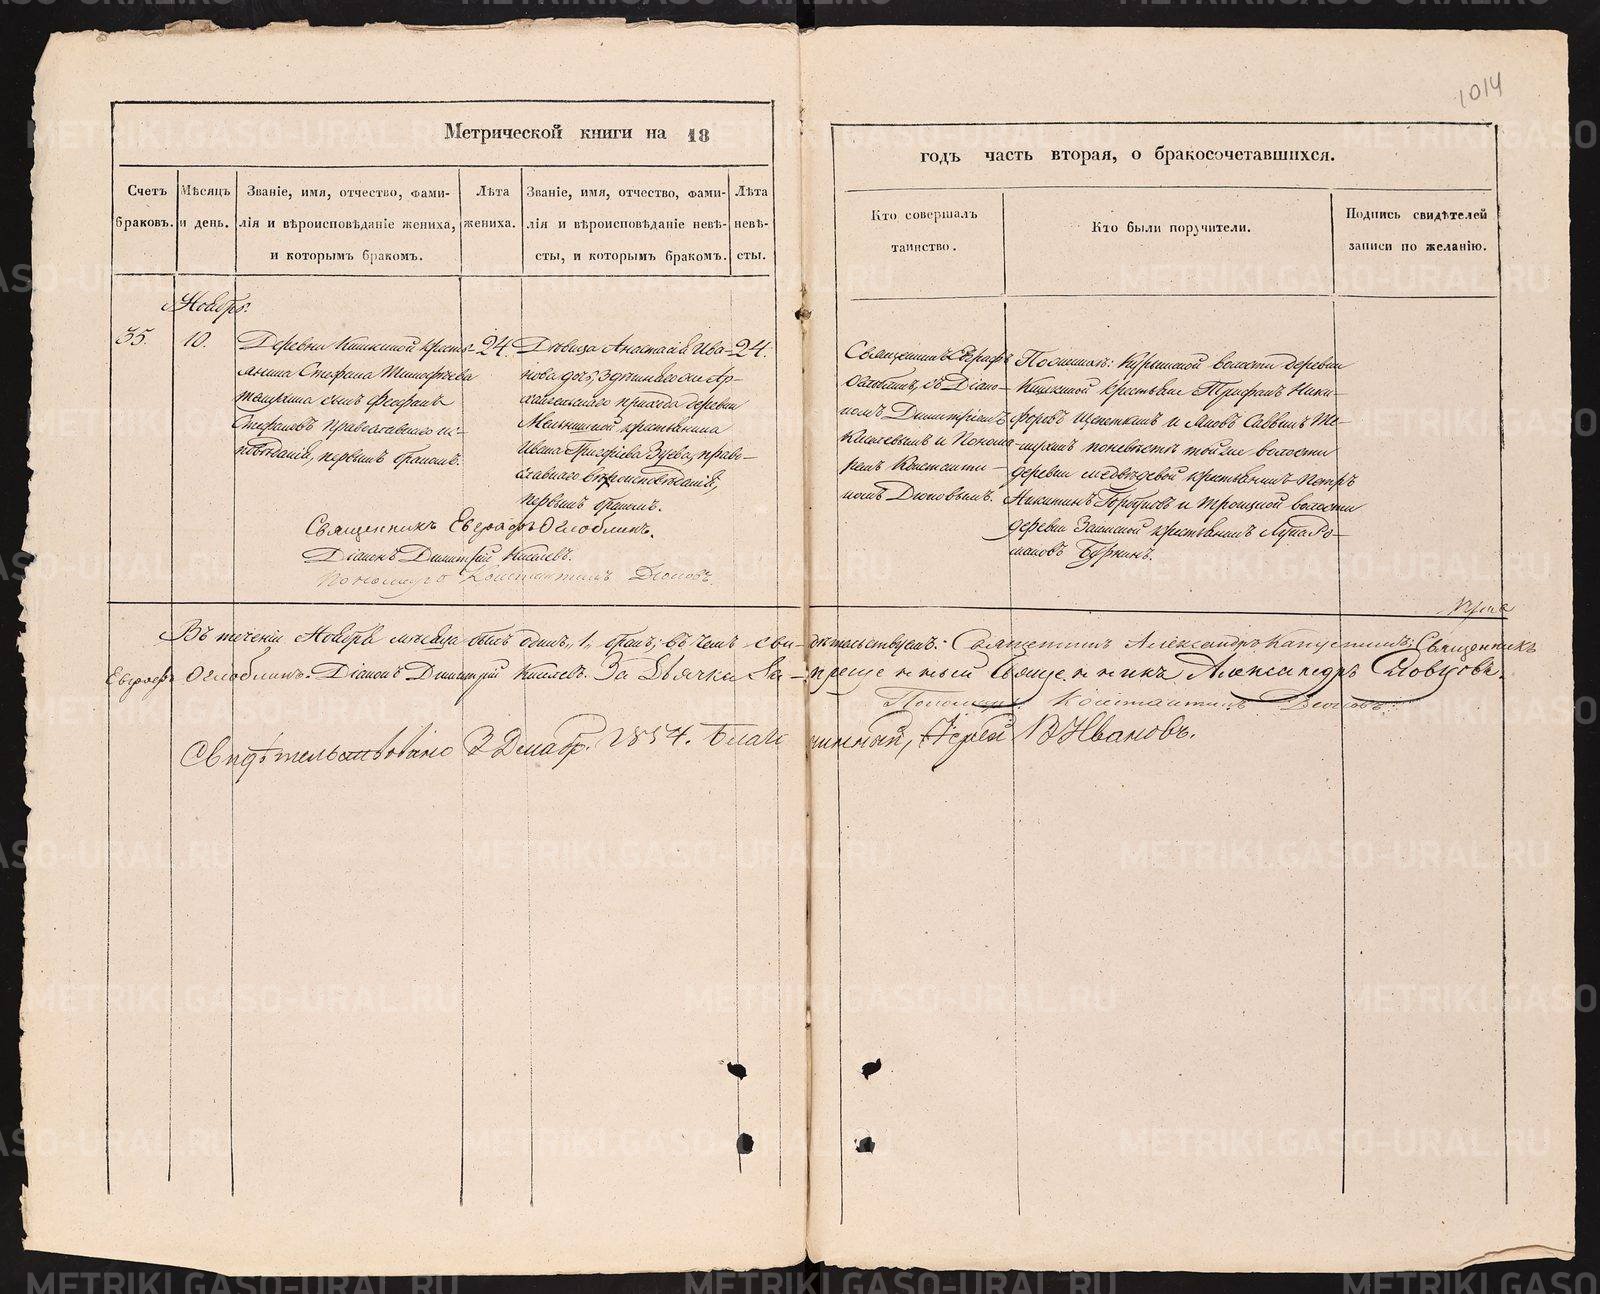 1014
Метрической книги на 18
годъ часть вторая, о бракосочетавшихся.
Счетъ браковъ.
Мѣсяцъ и день.
Званіе, имя, отчество, фами-
лія и вѣроисповѣданіе жениха,
и которымъ бракомъ.
Лѣта
жениха.
Званіе, имя, отчество, фами-
лія и вѣроисповѣданіе невѣ-
сты, и которымъ бракомъ.
Лѣта
невѣ-
сты.
Кто совершалъ
таинство.
Кто были поручители.
Подпись свидѣтелей
записи по желанію.
Ноябрь.
35.
10.
Деревни Кишкиной кресть-
янина Стефана Тимофѣева
сынъ Феофанъ
Стефановъ православнаго ис-
повѣданія, первымъ бракомъ.
24.
Дѣвица Анастасія Ива-
нова дочь, здѣшняго же Ар-
хангельскаго прихода деревни
крестьянина
Ивана Зуева, право-
славнаго вѣроисповѣданія,
первымъ бракомъ.
24.
Священникъ Евграфъ
Оглоблинъ, съ Діако-
номъ Димитріемъ
Киселевымъ и Понома-
ремъ Константи-
номъ Дюковымъ.
По женихѣ: волости деревни
Кишкиной крестьяне Трифонъ Ники-
форовъ Щепеткинъ и Яковъ Саввинъ
по невѣстѣ той же волости
деревни Медвѣдевой крестьянинъ Петръ
Никитинъ и Троицкой волости
деревни крестьянинъ Лука Ро-
мановъ Буркинъ.
Священникъ Евграфъ Оглоблинъ.
Діаконъ Димитрій Киселевъ.
Пономарь Константинъ Дюковъ.
Въ теченіи Ноября мѣсяца былъ одинъ, 1, бракъ; въ чемъ сви-дѣтельствуемъ: Священникъ Александръ Капустинъ; Священникъ
Евграфъ Оглоблинъ. Діаконъ Димитрій Киселевъ. За Дьячка За-прещенный Священникъ Александръ Словцовъ.
Пономарь Константинъ Дюковъ.
Свидѣтельствовано 3 Декабр. 1854. Благочинный, Іерей В Ивановъ.
METRIKI.GASO-URAL.RU